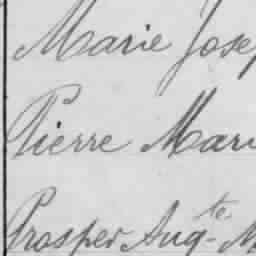 Marie Jose
Pierre Mari
Prosper Aug.te M